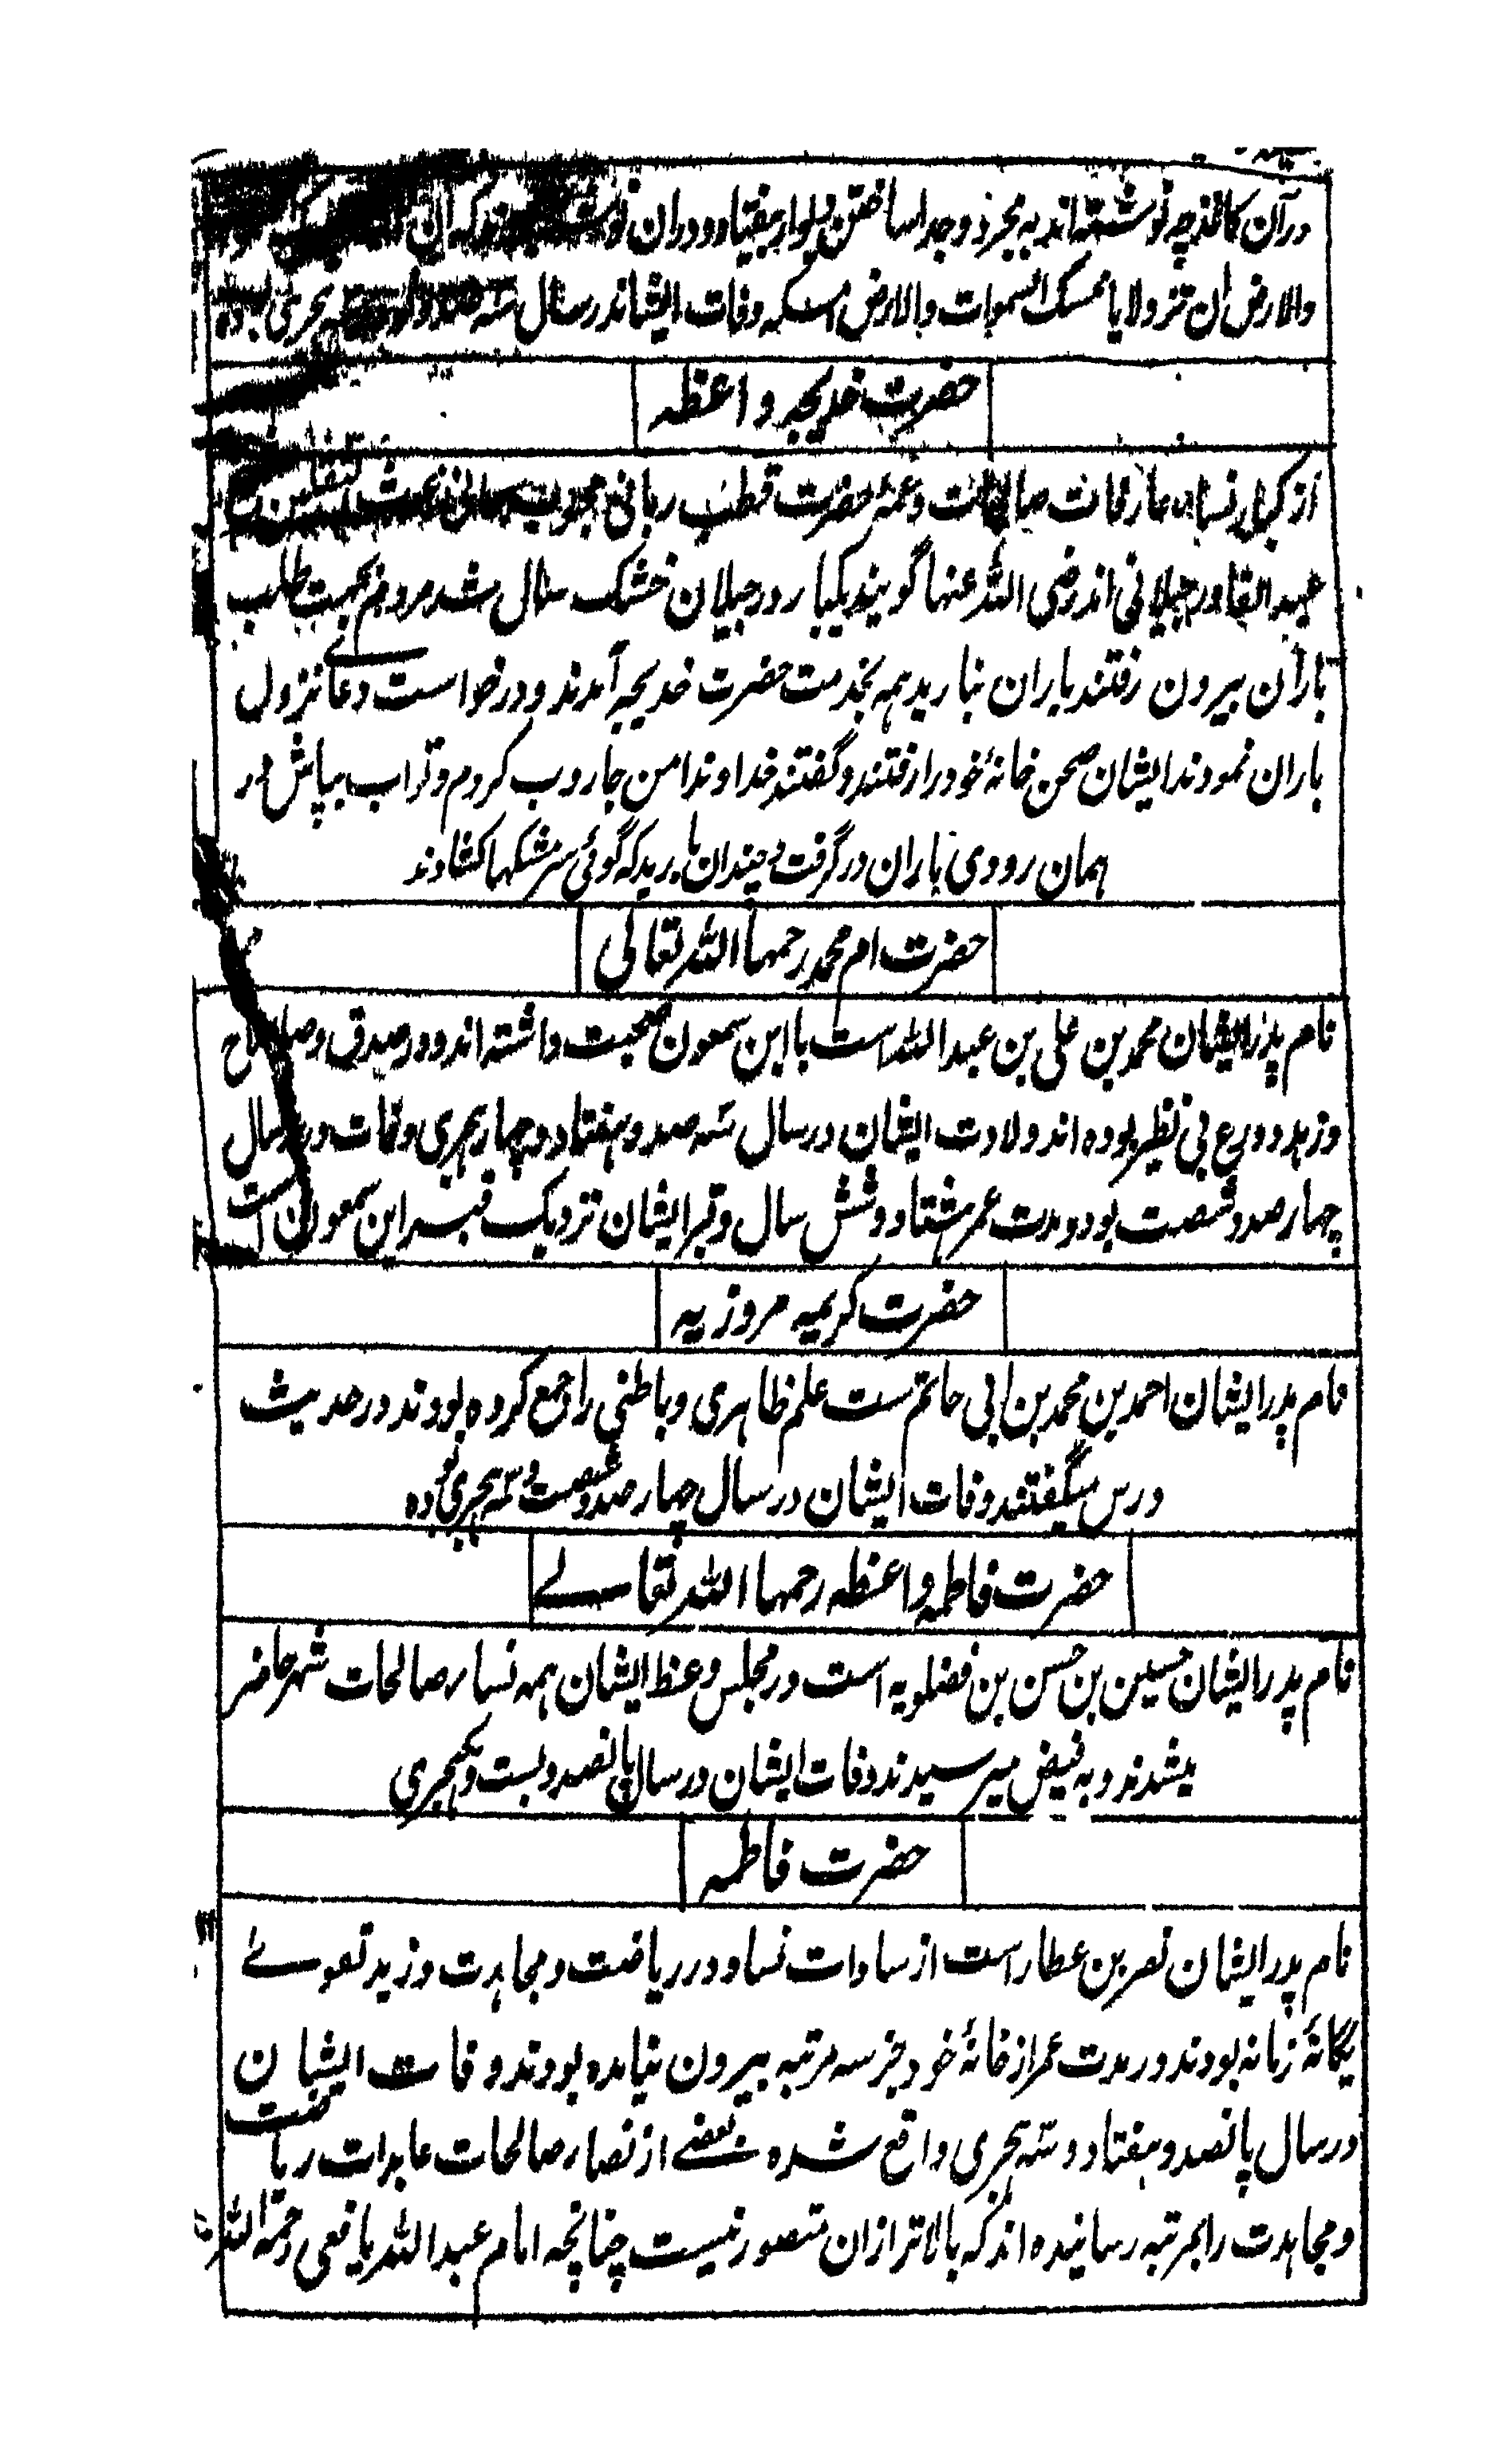 درآن کاغذ چه نوشته‌اند به مجرد و جدا ساختن دیوار بیفتاد و دران که ان
والارض ان تزولا یا ممسک السموات والارض امسکه وفات ایشاندر سال سه صد و هجری بوده
حضرت خدیجه واعظه
از کبار نساء عارفات صالحات وعمه حضرت قطب ربانی محبوب غوث الثقلین
عبد القادر جیلانی اند رضی الله عنها گویند یکبار در جیلان خشک سال شد مردم بجهت طلب
باران بیرون رفتند باران نبارید همه بخدمت حضرت خدیجه آمدند و درخواست دعائے نزول
باران نمودند ایشان صحن خانۂ خود را رفتند و گفتند خداوندا من جاروب کردم و تو آب بپاش در
همان رودی باران در گرفت و چندان ببارید که گوئی سر مشکها کشادند
حضرت ام محمد رحمها الله تعالی
نام پدر ایشان محمد بن علی بن عبد الله است با ابن سمعون صحبت داشته اند و در صدق و صلاح
و زهد و ورع بی نظیر بوده اند ولادت ایشان در سال سه صد و هفتاد و چهار هجری وفات در سال
چهار صد و شصت بود و مدت عمر هشتاد و شش سال و قبر ایشان نزدیک قبر ابن سمعون است
حضرت کریمه مروزیه
نام پدر ایشان احمد بن محمد بن ابی حاتم ست علم ظاهری و باطنی را جمع کرده بودند در حدیث
درس میگفتند وفات ایشان در سال چهار صد و شصت و سه هجری بوده
حضرت فاطمه واعظه رحمها الله تعالے
نام پدر ایشان حسین بن حسن بن فضلویه است در مجلس وعظ ایشان همه نساء صالحات شهر حاضر
میشدند و به فیض میرسیدند وفات ایشان در سال پانصد و بست و یکهجری
حضرت فاطمه
نام پدر ایشان نصر بن عطار است از سادات نسا و در ریاضت و مجاهدت و زهد تقوے
یگانۂ زمانه بودند و در مدت عمر از خانۂ خود جز سه مرتبه بیرون نیامده بودند وفات ایشان
در سال پانصد و هفتاد و سه هجری واقع شده بعضے از نساء صالحات عابدات ریاضت
و مجاهدت را بمرتبه رسانیده اند که بالاتر ازان متصور نیست چنانچه امام عبد الله یافعی رحمة الله